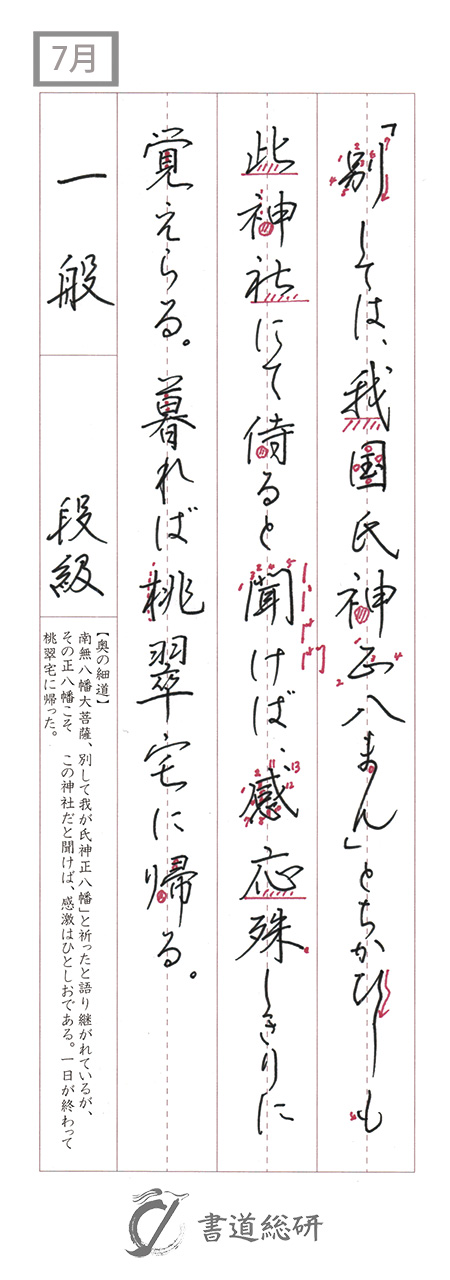 7月
「別しては、我国氏神正八まん」とちかひしも
此神社にて侍ると聞けば、感応殊しきりに
覚えらる。暮れば桃翠宅に帰る。
一般
段級
【奥の細道】
南無八幡大菩薩、別して我が氏神正八幡」と祈ったと語り継がれているが、
その正八幡こそ この神社だと聞けば、感激はひとしおである。一日が終わって
桃翠宅に帰った。
書道総研